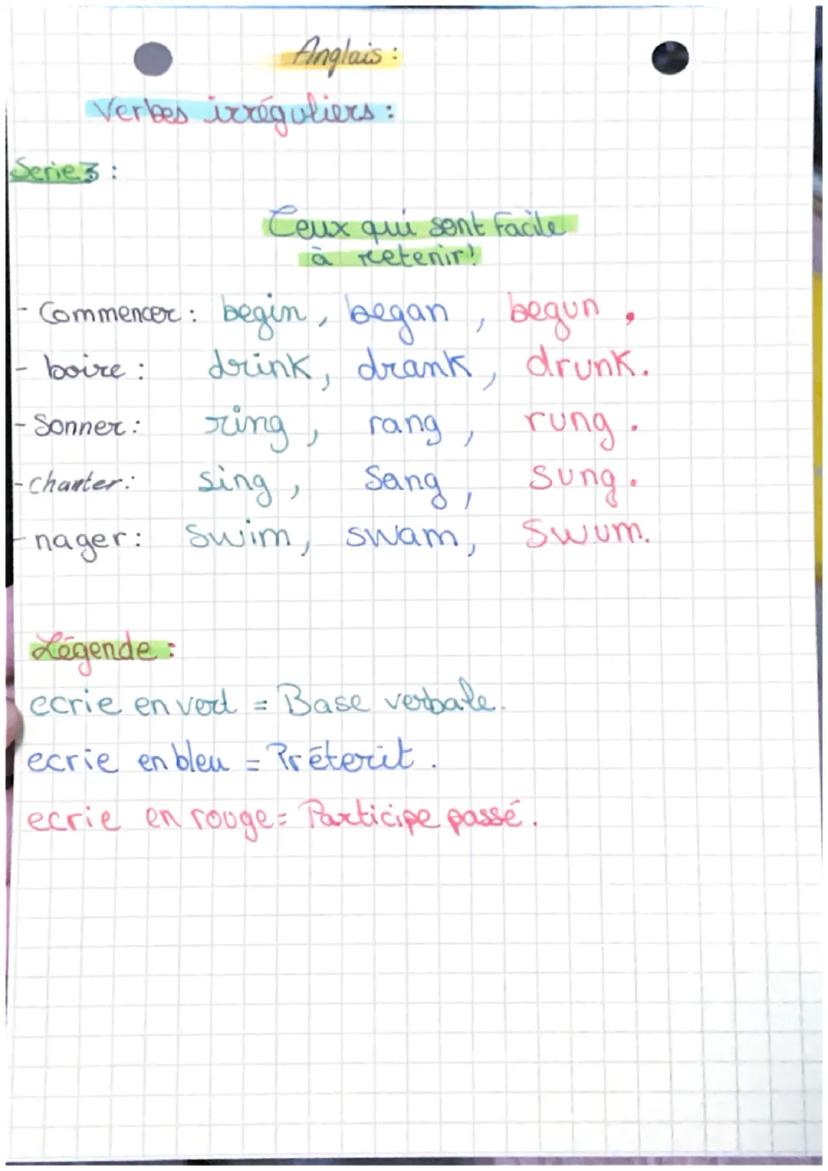 Anglais :
Verbes irréguliers :
Serie 3 :
Ceux qui sont facile
à retenir !
- Commencer : begin, began, begun.
- boire : drink, drank, drunk.
- Sonner : ring, rang, rung.
- chanter : sing, Sang, Sung.
- nager : swim, swam, Swum.
Légende :
ecrie en vert = Base verbale.
ecrie en bleu = Préterit.
ecrie en rouge = Participe passé.